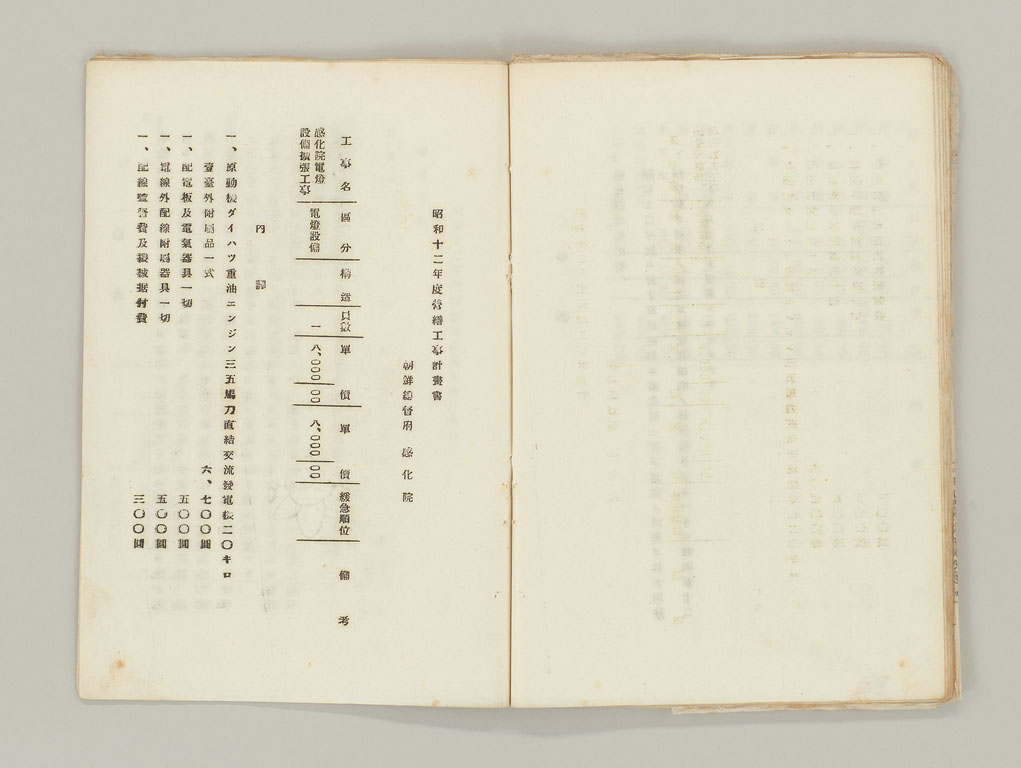 昭和十二年度營繕工事計畫書
朝鮮總督府感化院
工事名
區分
構造
員數
單價
單價
緩急順位
備考
感化院電燈
設備擴張工事
電燈設備
一
八、〇〇〇
〇〇
八、〇〇〇
〇〇
內譯
一、原動機ダイハツ重油エンジン三五馬力直結交流發電機二〇キロ
臺外附屬品一式 六、七〇〇圓
一、配電板及電氣器具一切 五〇〇圓
一、電線外配線附屬器具一切 五〇〇圓
一、配線監督費及機械据付費 三〇〇圓